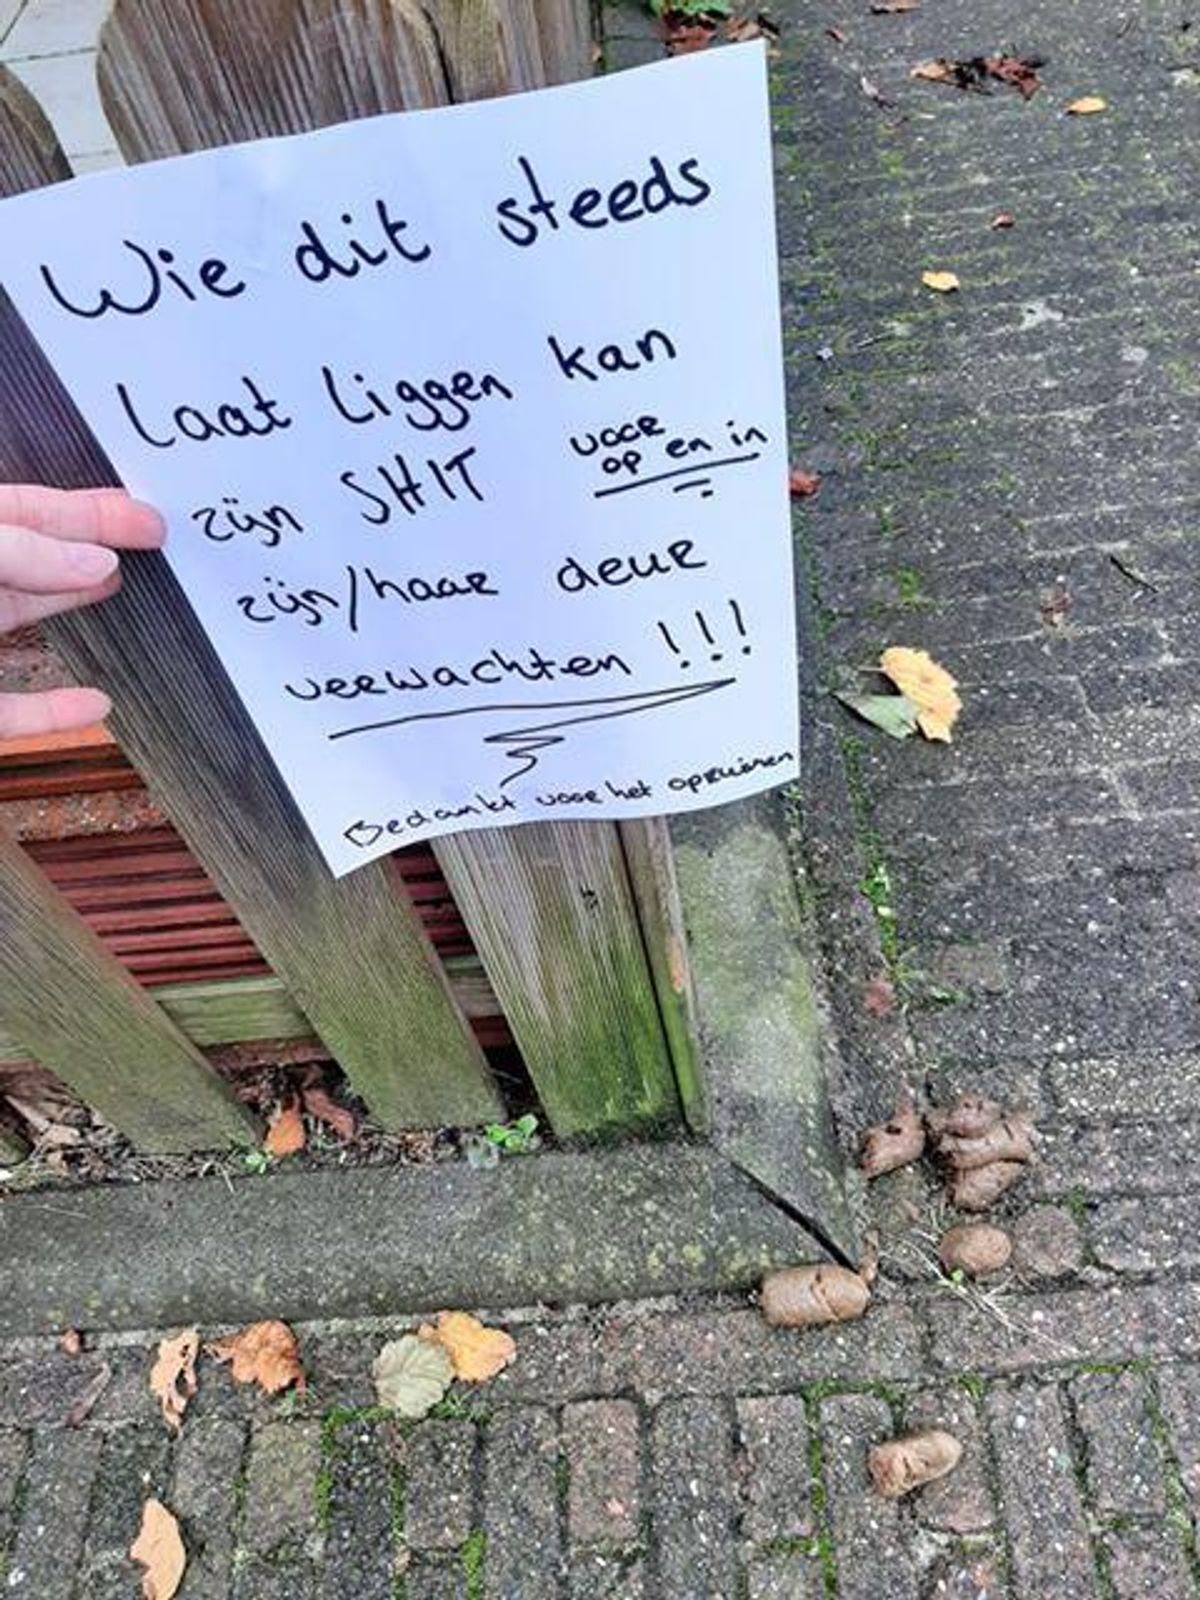 Wie dit steeds
laat liggen kan
zijn SHIT voor
op en in
zijn/haar deur
verwachten !!!
Bedankt voor het opruimen